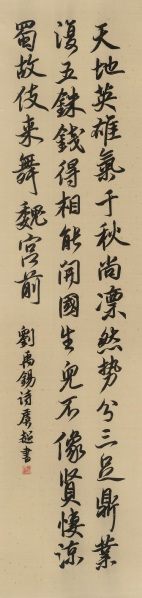 天地英雄氣千秋尚凛然势分三足鼎業
復五銖錢得相能開國生兒不像賢悽涼
蜀故伎来舞魏宮前
劉禹錫诗虞超書